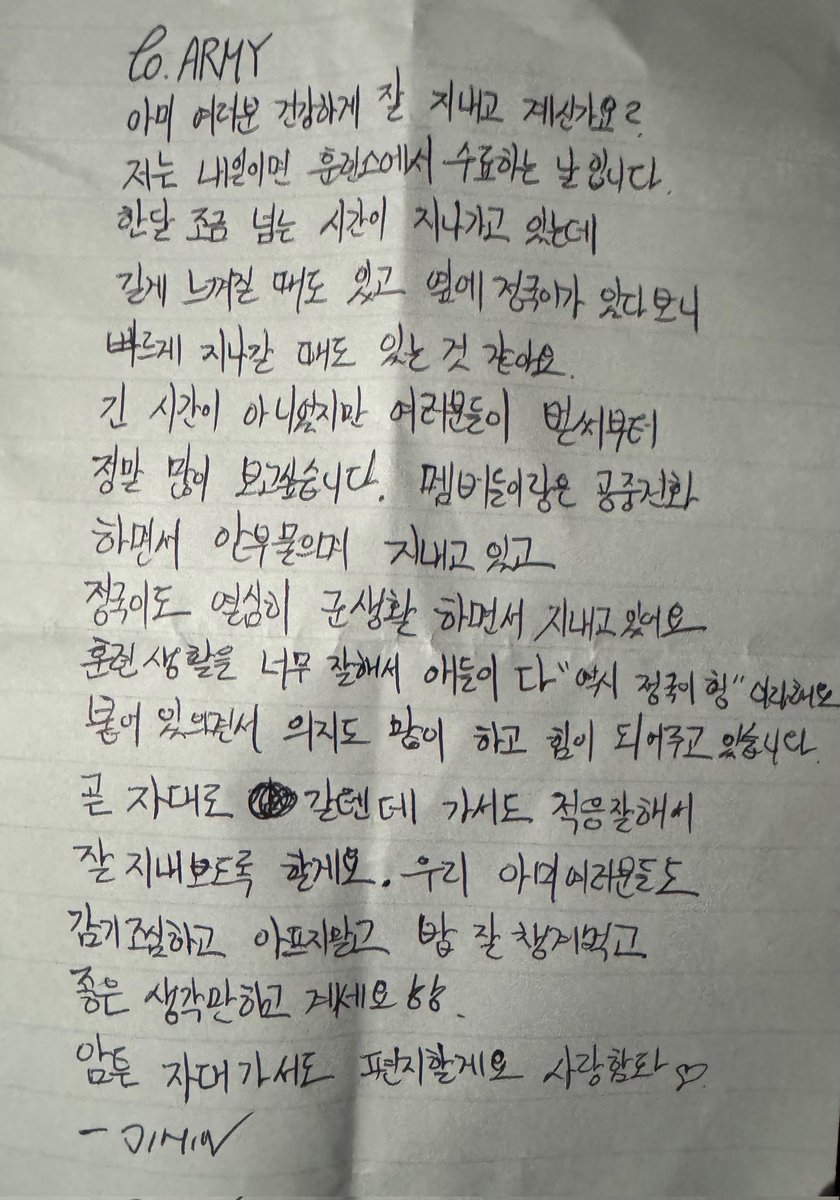 to. ARMY
아미 여러분 건강하게 잘 지내고 계신가요?
저는 내일이면 훈련소에서 수료하는 날입니다.
한달 조금 넘는 시간이 지나가고 있는데
길게 느껴질 때도 있고 옆에 정국이가 있다보니
빠르게 지나갈 때도 있는 것 같아요.
긴 시간이 아니었지만 여러분들이 벌써부터
정말 많이 보고싶습니다. 멤버들이랑은 공중전화
하면서 안부물으며 지내고 있고
정국이도 열심히 군생활 하면서 지내고 있어요
훈련 생활을 너무 잘해서 애들이 다 "역시 정국이 형" 이라해요
붙어 있으면서 의지도 많이 하고 힘이 되어주고 있습니다.
곧 자대로 갈텐데 가서도 적응잘해서
잘 지내보도록 할게요. 우리 아미여러분들도
감기조심하고 아프지말고 밥 잘 챙겨먹고
좋은 생각만하고 계세요
암튼 자대가서도 편지할게요 사랑함돠♡.
- JIMIN